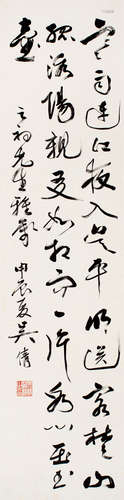 寒雨連江夜入吴平明送客楚山
孤洛陽親友如相问一片冰心在玉
壺
先生雅屬 甲辰夏吴倩